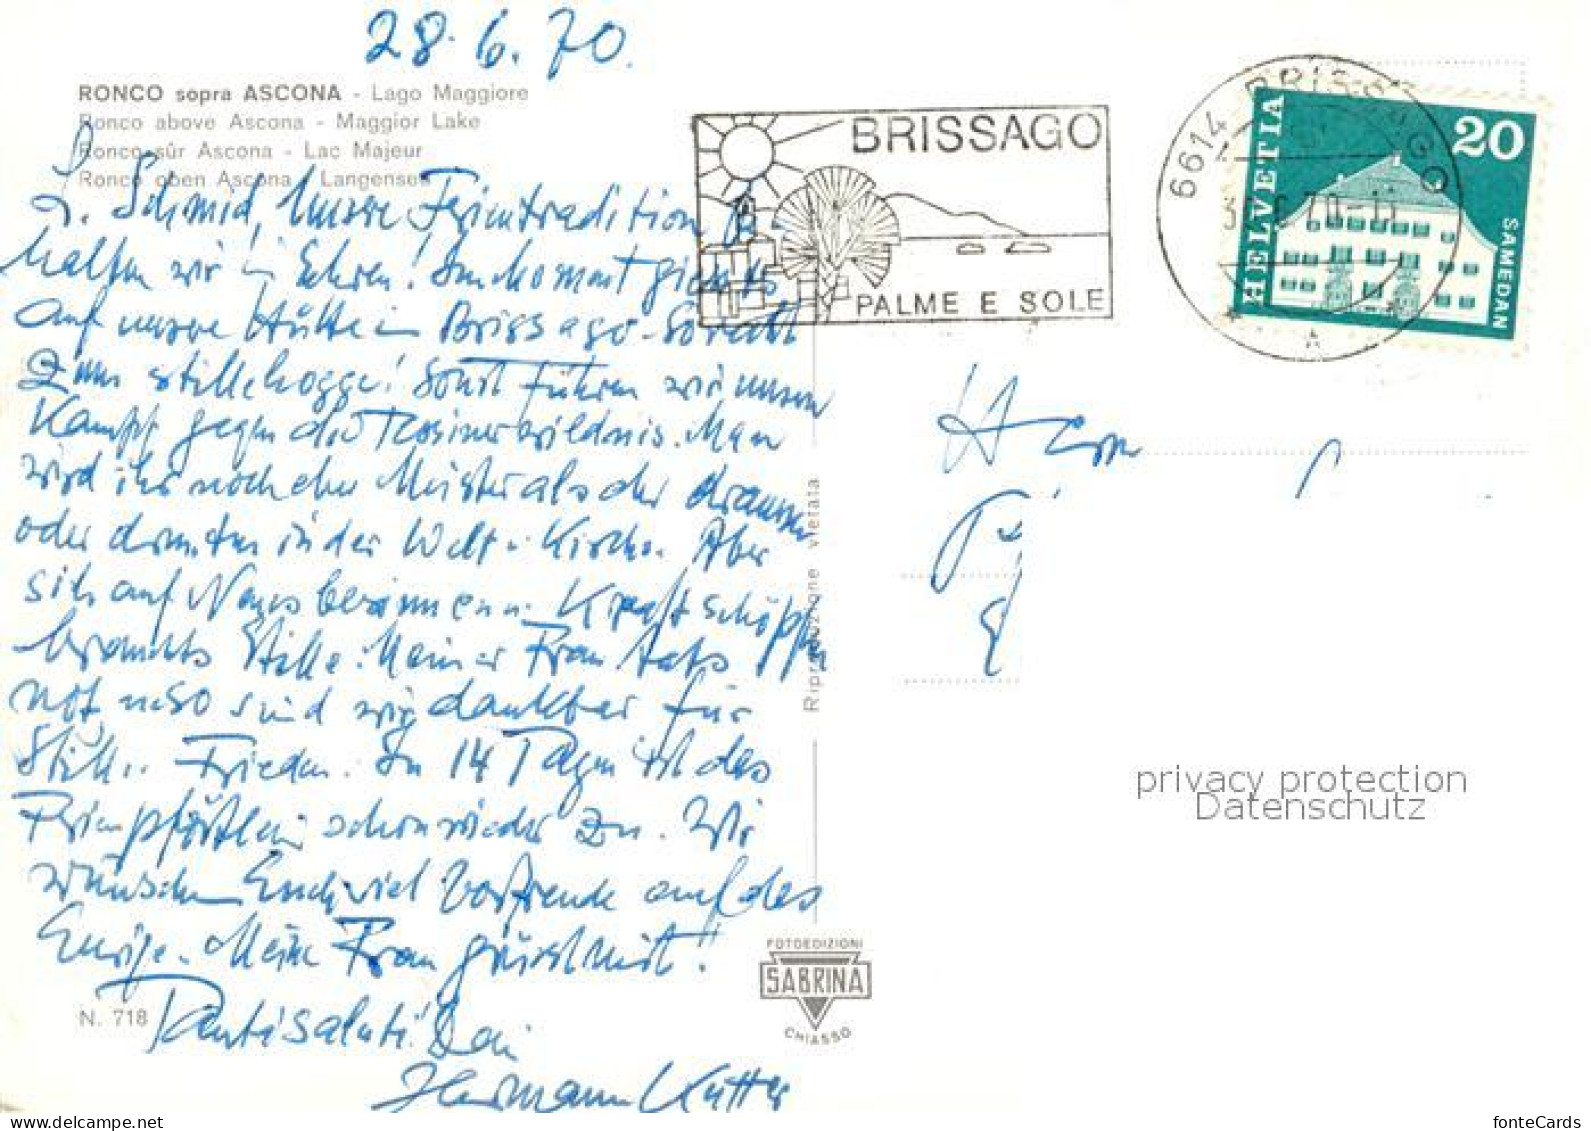 28.6.70.
RONCO sopra ASCONA - Lago Maggiore
Ronco above Ascona - Maggior Lake
Ronco sûr Ascona - Lac Majeur
Ronco oben Ascona - Langensee
L. Schmid, Unsere Ferientradition
halten wir in Ehren! Sukommt
auf unsere Hütte in Brissago. So recht
zum stille hogge! Sonst führen wir unsern
Kampf gegen die Wildnis. Man
wird ihr noch eher Meister als der draussen
oder drinnen in der Welt u. Kirche. Aber
sich auf Neues besinnen u. Kraft schöpfen
brauchts Stille. Meiner Frau tats
not u. so sind wir dankbar für
Stille u. Frieden. In 14 Tagen ist das
schon wieder zu. Wir
wünschen Euch viel Vorfreude auf das
Eurige. Meine Frau grüsst mit!
Tanti saluti! Dein
Hermann Kutter
N. 718
BRISSAGO
PALME E SOLE
6614 BRISSAGO
HELVETIA
20
SAMEDAN
Riproduzione vietata
FOTOEDIZIONI
SABRINA
CHIASSO
privacy protection
Datenschutz
fonteCards
www.delcampe.net